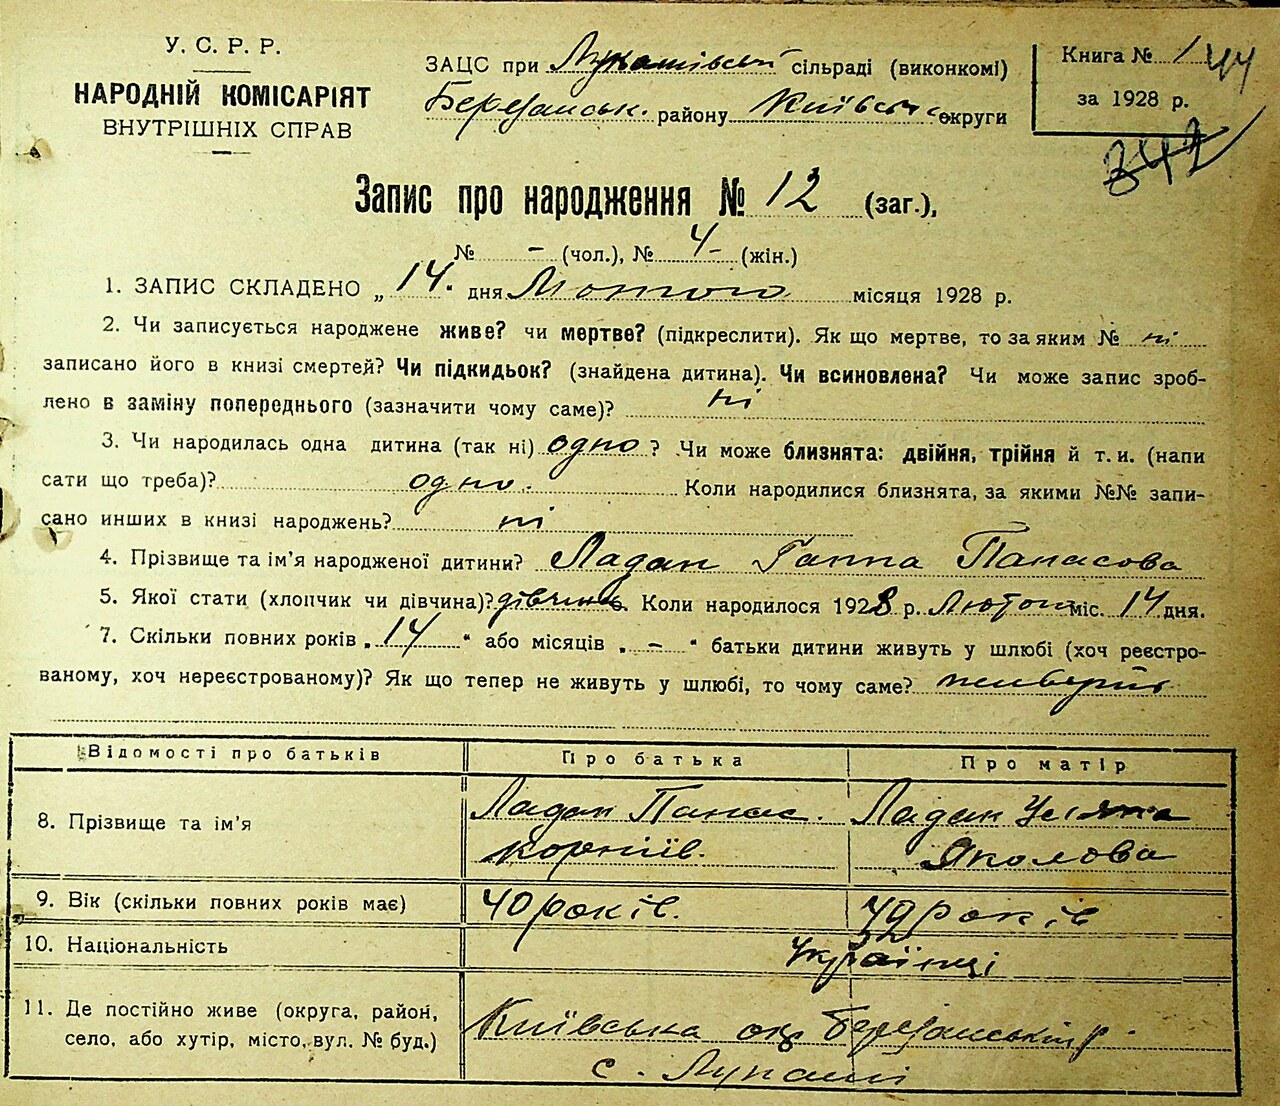 У. С. Р. Р.
НАРОДНІЙ КОМІСАРІЯТ
ВНУТРІШНІХ СПРАВ
ЗАЦС при Лукашівській сільраді (виконкомі)
Березанськ. району Київськ округи
Книга № 144
за 1928 р.
342
Запис про народження № 12 (заг.),
№ – (чол.), № 4- (жін.)
1. ЗАПИС СКЛАДЕНО „ 14 " дня Лютого місяця 1928 р.
2. Чи записується народжене живе? чи мертве? (підкреслити). Як що мертве, то за яким № ні
записано його в книзі смертей? Чи підкидьок? (знайдена дитина). Чи всиновлена? Чи може запис зроб-
лено в заміну попереднього (зазначити чому саме)? ні
3. Чи народилась одна дитина (так ні) одно ? Чи може близнята: двійня, трійня й т. и. (напи
сати що треба)? одно. Коли народилися близнята, за якими №№ запи-
сано инших в книзі народжень? ні
4. Прізвище та ім'я народженої дитини? Ладан Ганна Панасова
5. Якої стати (хлопчик чи дівчина)? дівчина Коли народилося 1928 р. Лютого міс. 14 дня.
7. Скільки повних років „ 14 " або місяців „ – " батьки дитини живуть у шлюбі (хоч реєстро-
ваному, хоч нереєстрованому)? Як що тепер не живуть у шлюбі, то чому саме?
Відомості про батьків Про батька Про матір
8. Прізвище та ім'я Ладан Панас. Ладан
корніїв. Яколова
9. Вік (скільки повних років має) 40 років. років
10. Національність Українці
11. Де постійно живе (округа, район, Київська окр Березанський р.
село, або хутір, місто, вул. № буд.) с. Лукаші